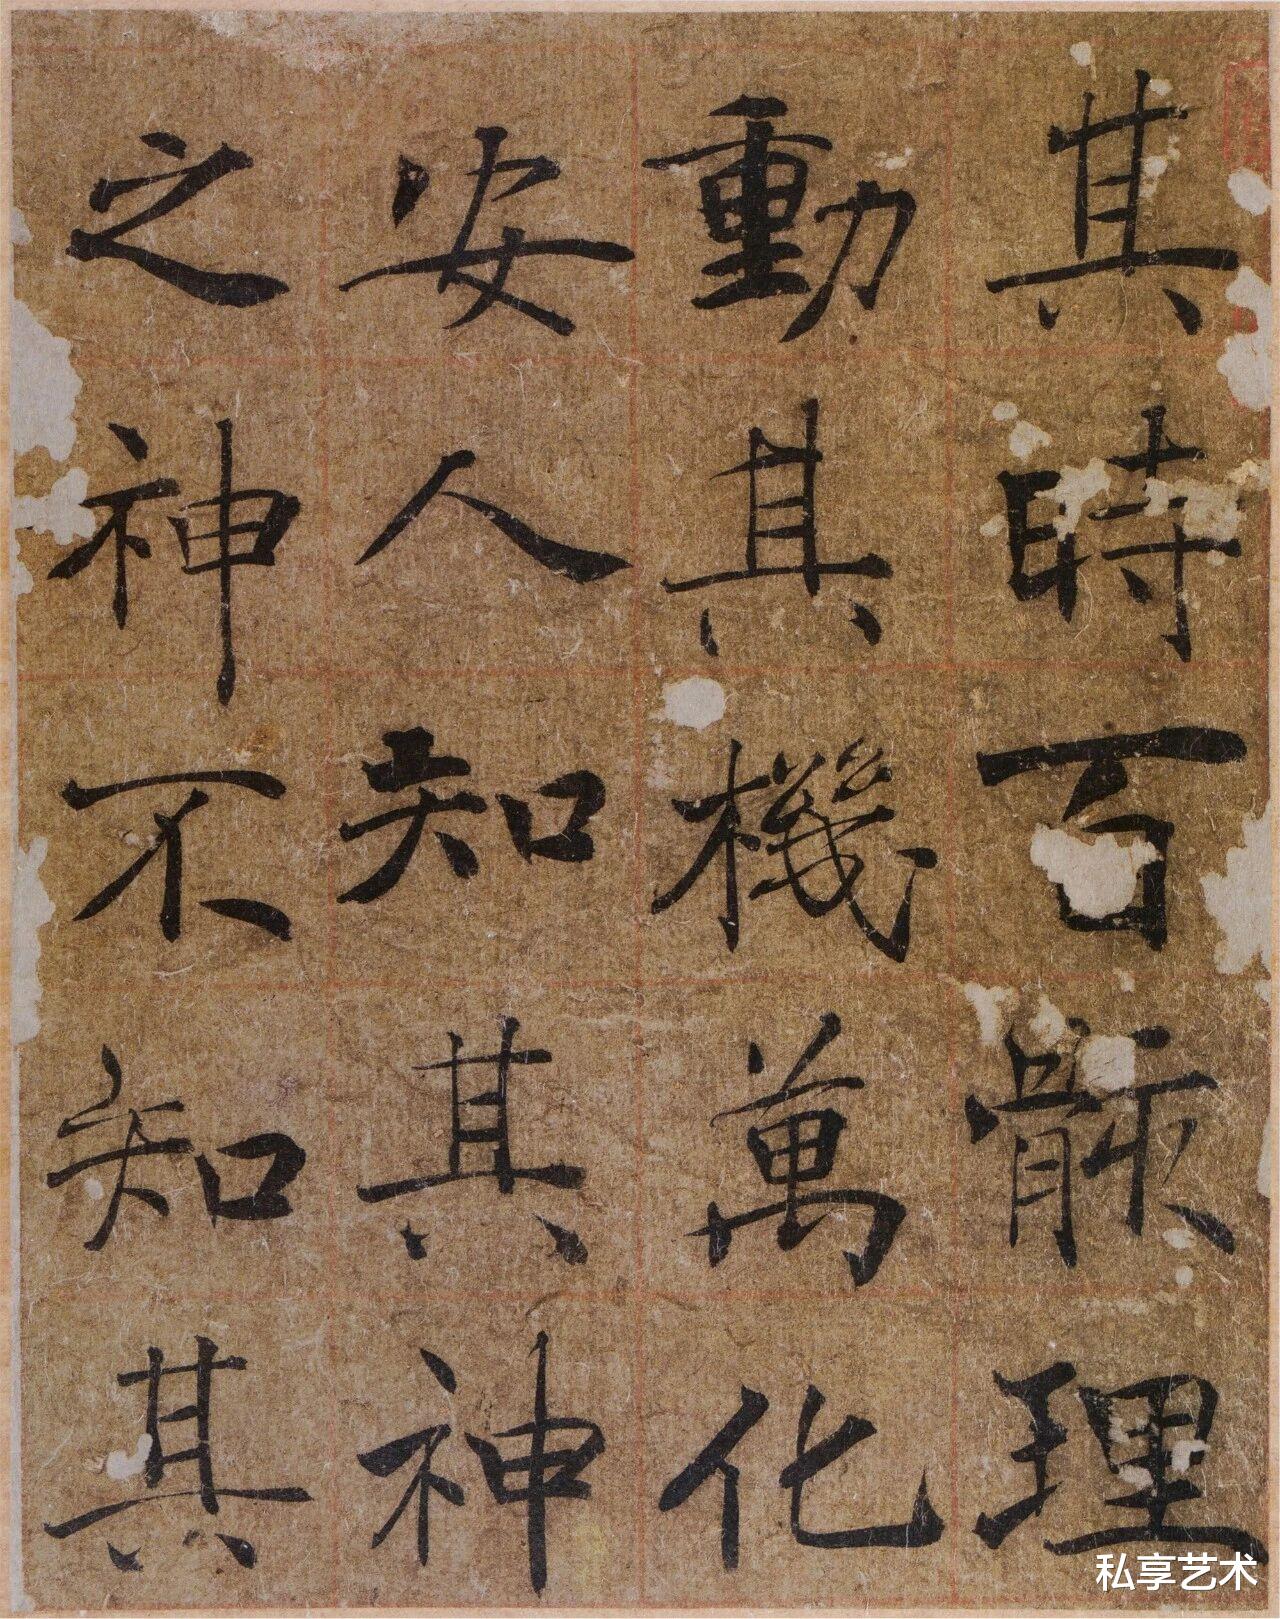 其時百骸理
動其機萬化
安人知其神
之神不知其
私享艺术